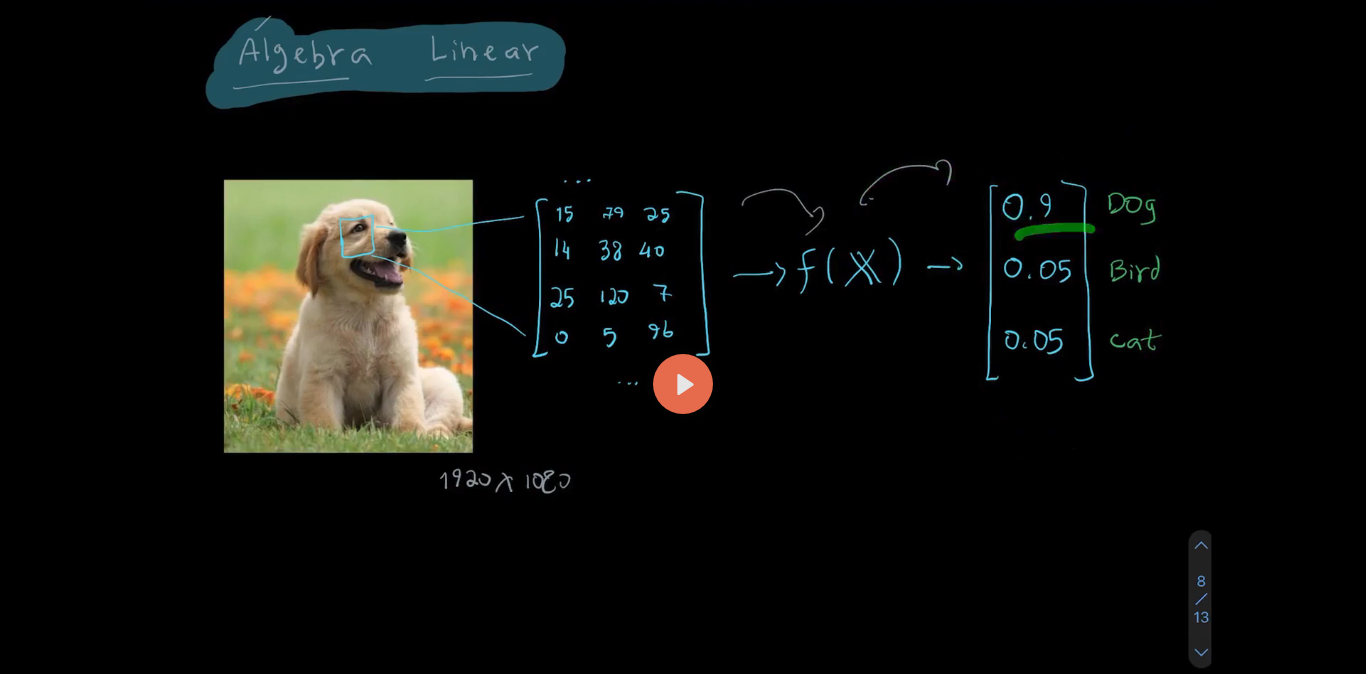 Álgebra Linear
...
15 79 25
14 38 40
25 120 7
0 5 96
...
→ f(X) →
0.9 Dog
0.05 Bird
0.05 cat
1920 x 1080
8
/
13